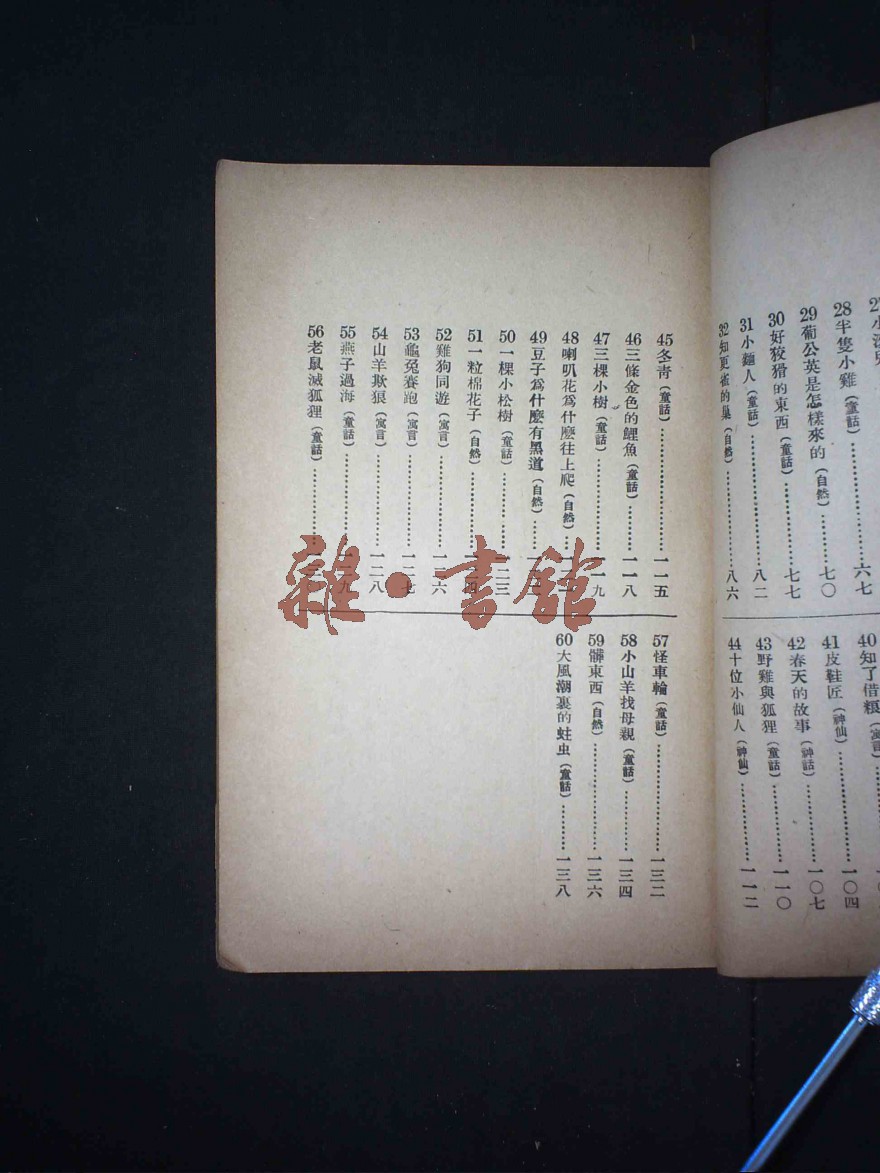 28 半隻小雞（童話）…………六七
29 葡公英是怎樣來的（自然）……七〇
30 好狡猾的東西（童話）………七七
31 小麵人（童話）………………八二
32 知更雀的巢（自然）…………八六
40 知了借糧（寓言）
41 皮鞋匠（神仙）………………一〇四
42 春天的故事（神話）…………一〇七
43 野雞與狐狸（童話）…………一一〇
44 十位小仙人（神仙）…………一一二
45 冬青（童話）…………………一一五
46 三條金色的鯉魚（童話）……一一八
47 三棵小樹（童話）……………一一九
48 喇叭花爲什麽往上爬（自然）…
49 豆子爲什麽有黑道（自然）……
50 一棵小松樹（童話）…………一二三
51 一粒棉花子（自然）…………一二四
52 雞狗同遊（寓言）……………一二六
53 龜兔賽跑（寓言）……………一二七
54 山羊欺狼（寓言）……………一二八
55 燕子過海（童話）……………一二九
56 老鼠滅狐狸（童話）…………
57 怪車輪（童話）………………一三二
58 小山羊找母親（童話）………一三四
59 髒東西（自然）………………一三六
60 大風潮裏的蛀虫（童話）……一三八
雜·書館